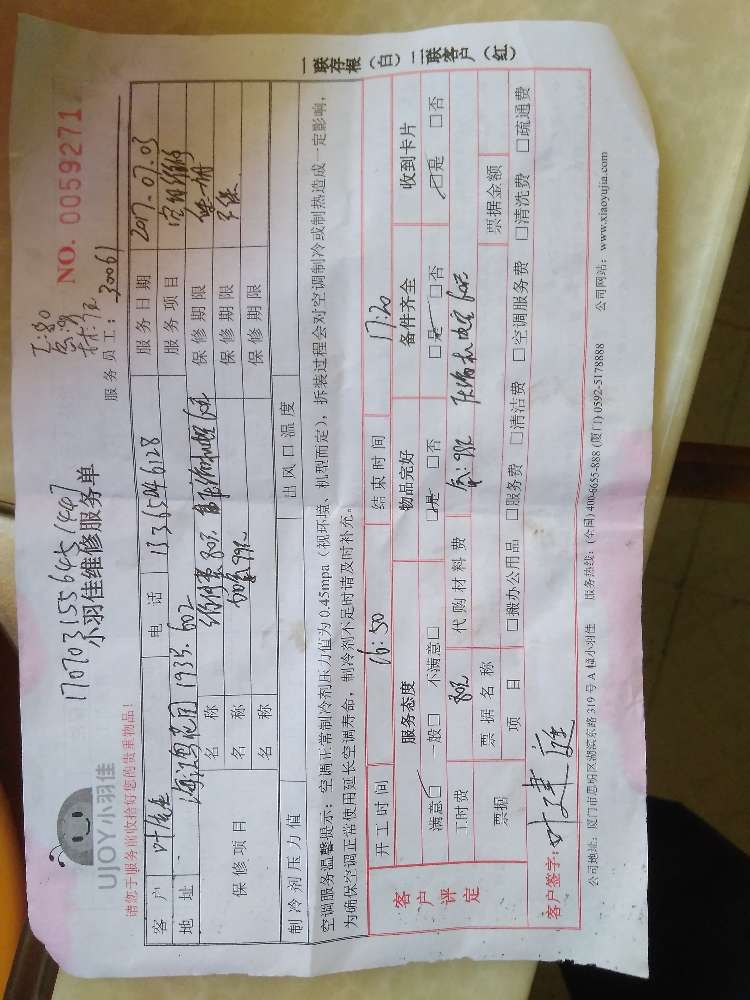 170703155645144
UJOY小羽佳
小羽佳维修服务单
NO. 0059271
请您于服务前收拾好您的贵重物品!
服务员工: 30061
客户 叶
电话
服务日期 2017.07.03
地址 1935.602
服务项目 空调维修
保修项目
名称 维修费80元
保修期限
名称 加氟99元
保修期限
名称
保修期限
制冷剂压力值
出风口温度
空调服务温馨提示: 空调正常制冷剂压力值为0.45mpa(视环境、机型而定), 拆装过程会对空调制冷或制热造成一定影响,
为确保空调正常使用延长空调寿命, 制冷剂不足时请及时补充。
客户评定
开工时间 16:50
结束时间 17:20
服务态度 物品完好 备件齐全 收到卡片
满意□ 一般□ 不满意□ □是 □否 □是 □否 □是 □否
工时费 80元 代购材料费
票据
票据名称
票据金额
项目 □搬办公用品 □服务费 □清洁费 □空调服务费 □清洗费 □疏通费
客户签字: 叶建
公司地址: 厦门市思明区湖滨东路319号A幢小羽佳 服务热线: (全国)400-6655-888 (厦门)0592-5178888 公司网站: www.xiaoyujia.com
一联存根(白) 二联客户(红)